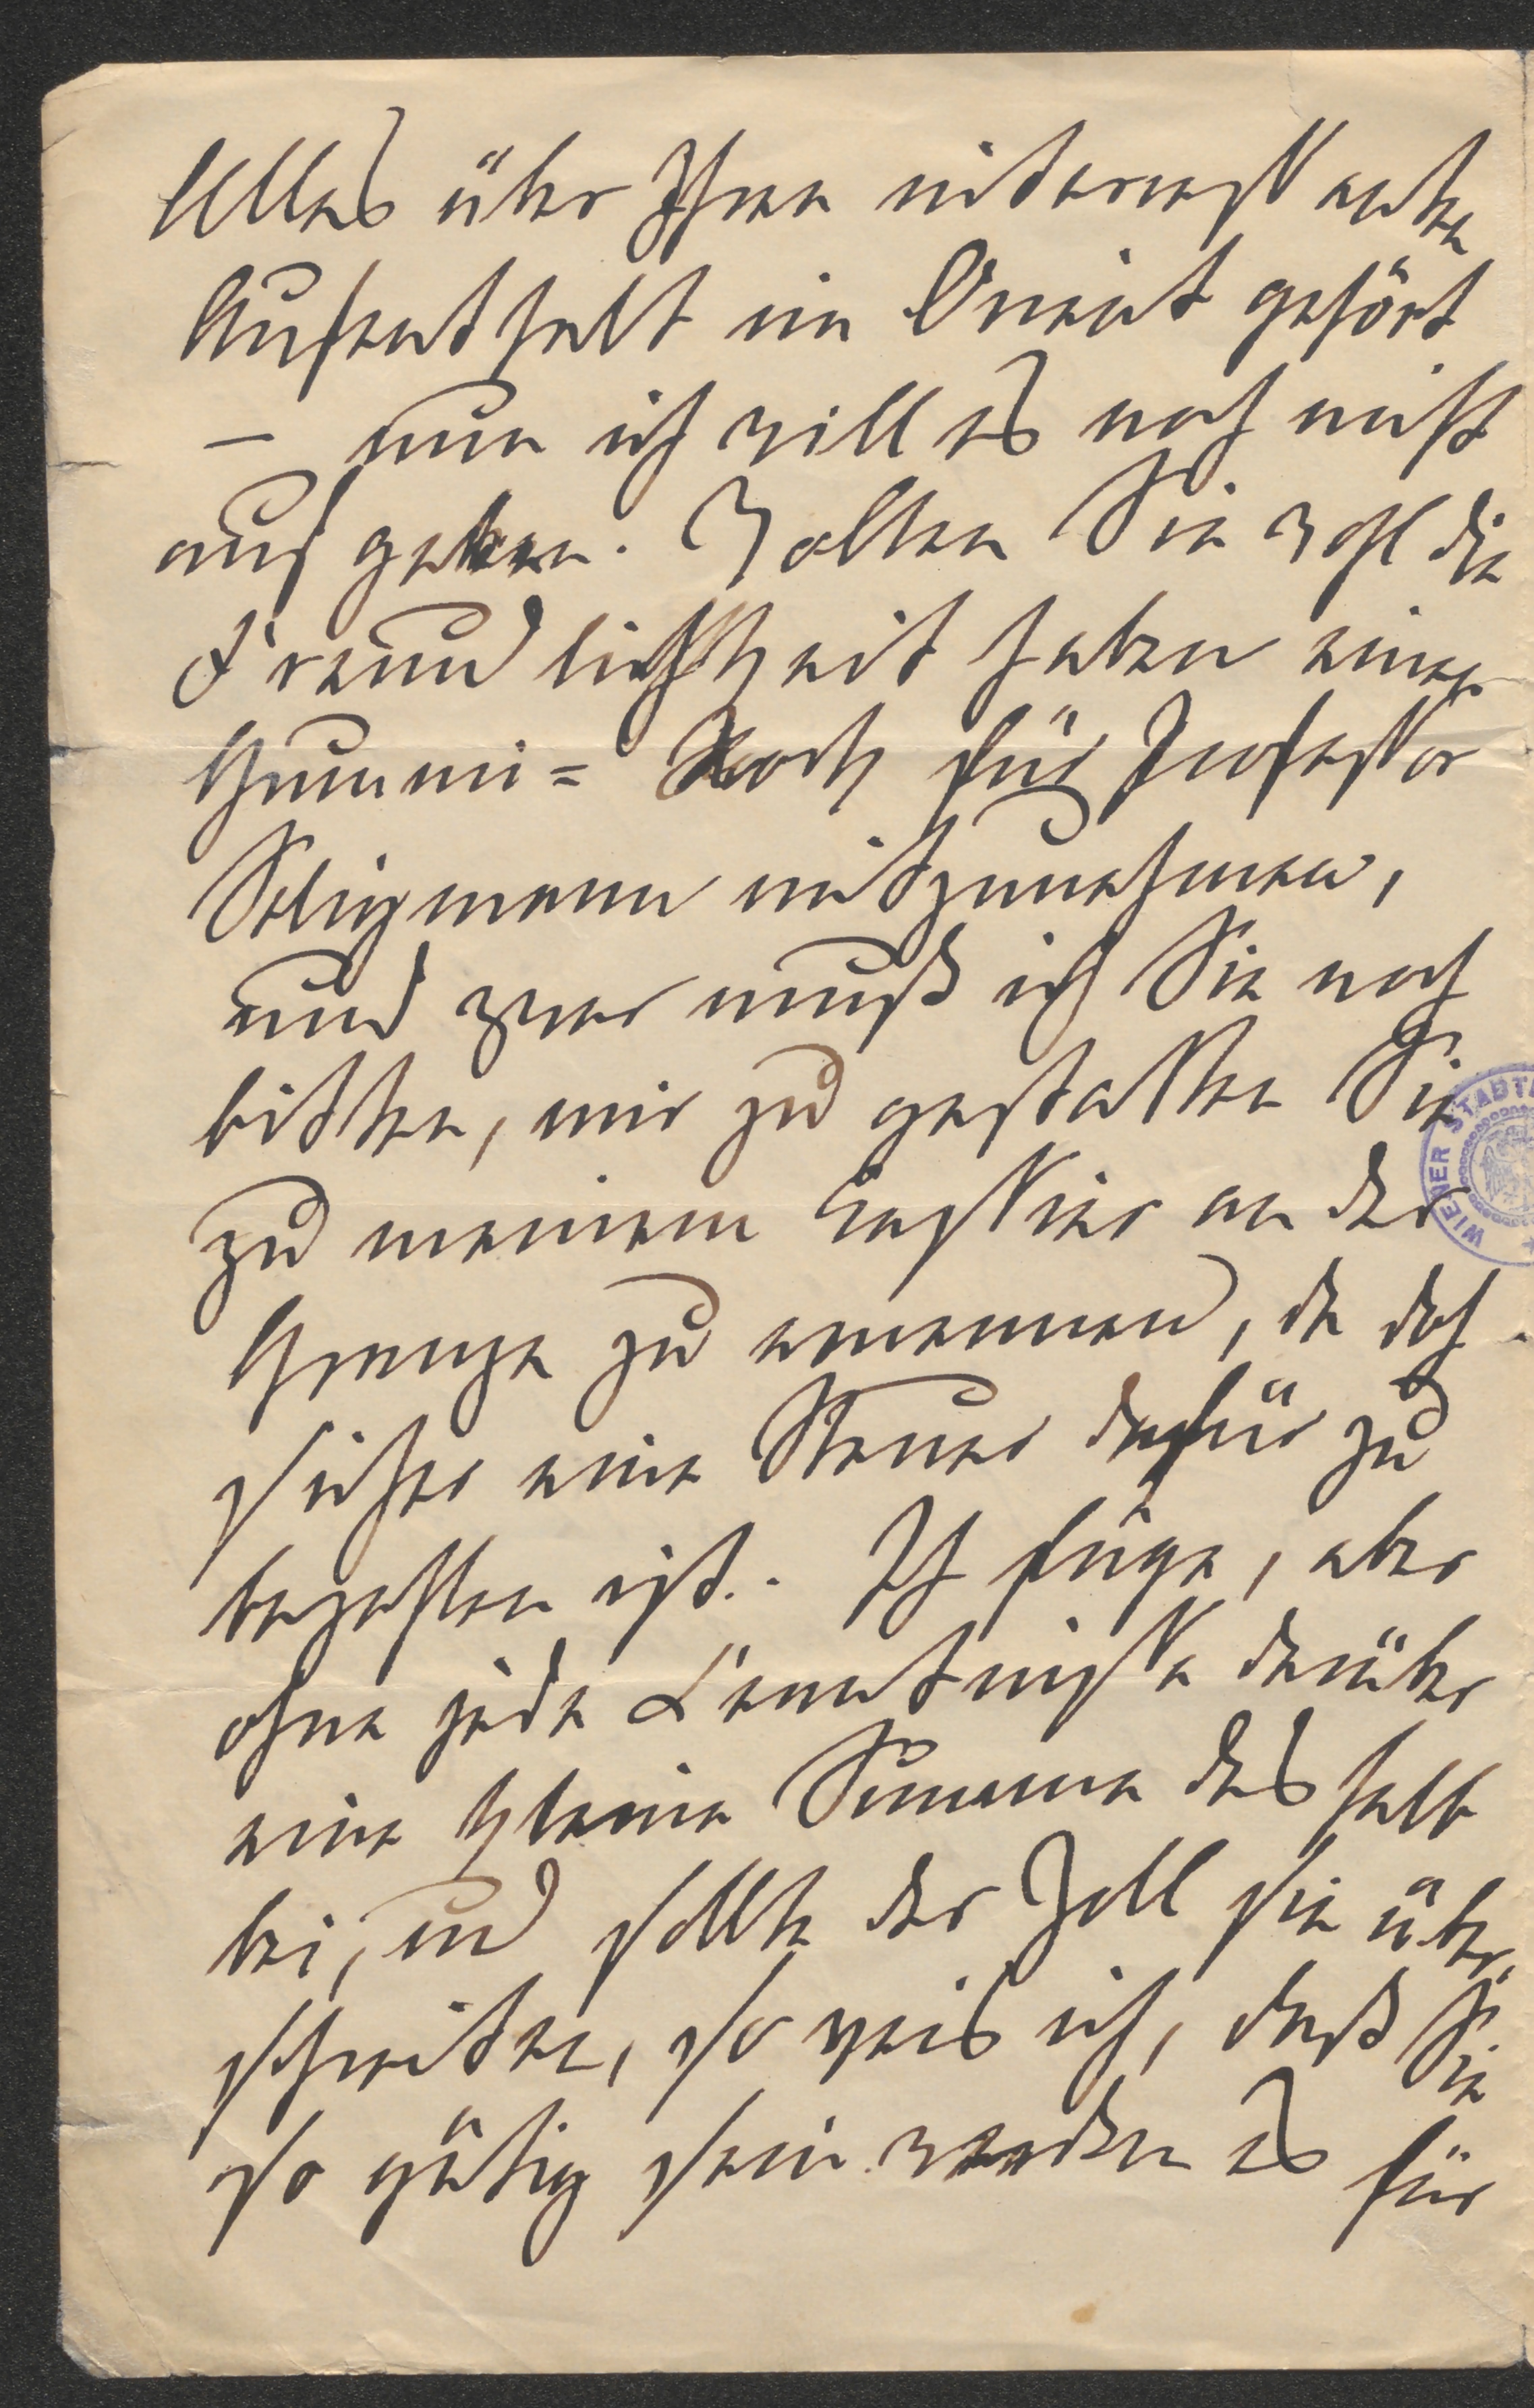 Alles über Ihren interessanten
Aufenthalt im Orient gehört
— nun ich will es noch nicht
aufgeben. Wollen Sie wohl die
Freundlichkeit haben einen
Gummi= Rock für Professor
Seligmann mitzunehmen,
und zwar muß ich Sie noch
bitten, mir zu gestatten Sie
zu meinem Cassier an der
Grenze zu ernennen, da doch
sicher eine Steuer dafür zu
bezahlen ist. Ich füge, aber
ohne jede Kenntnisse darüber
eine kleine Summe deshalb
bei, und sollte der Zoll sie über
schreiten, so weis ich, daß Sie
so gütig sein werden es für
WIENER STADT